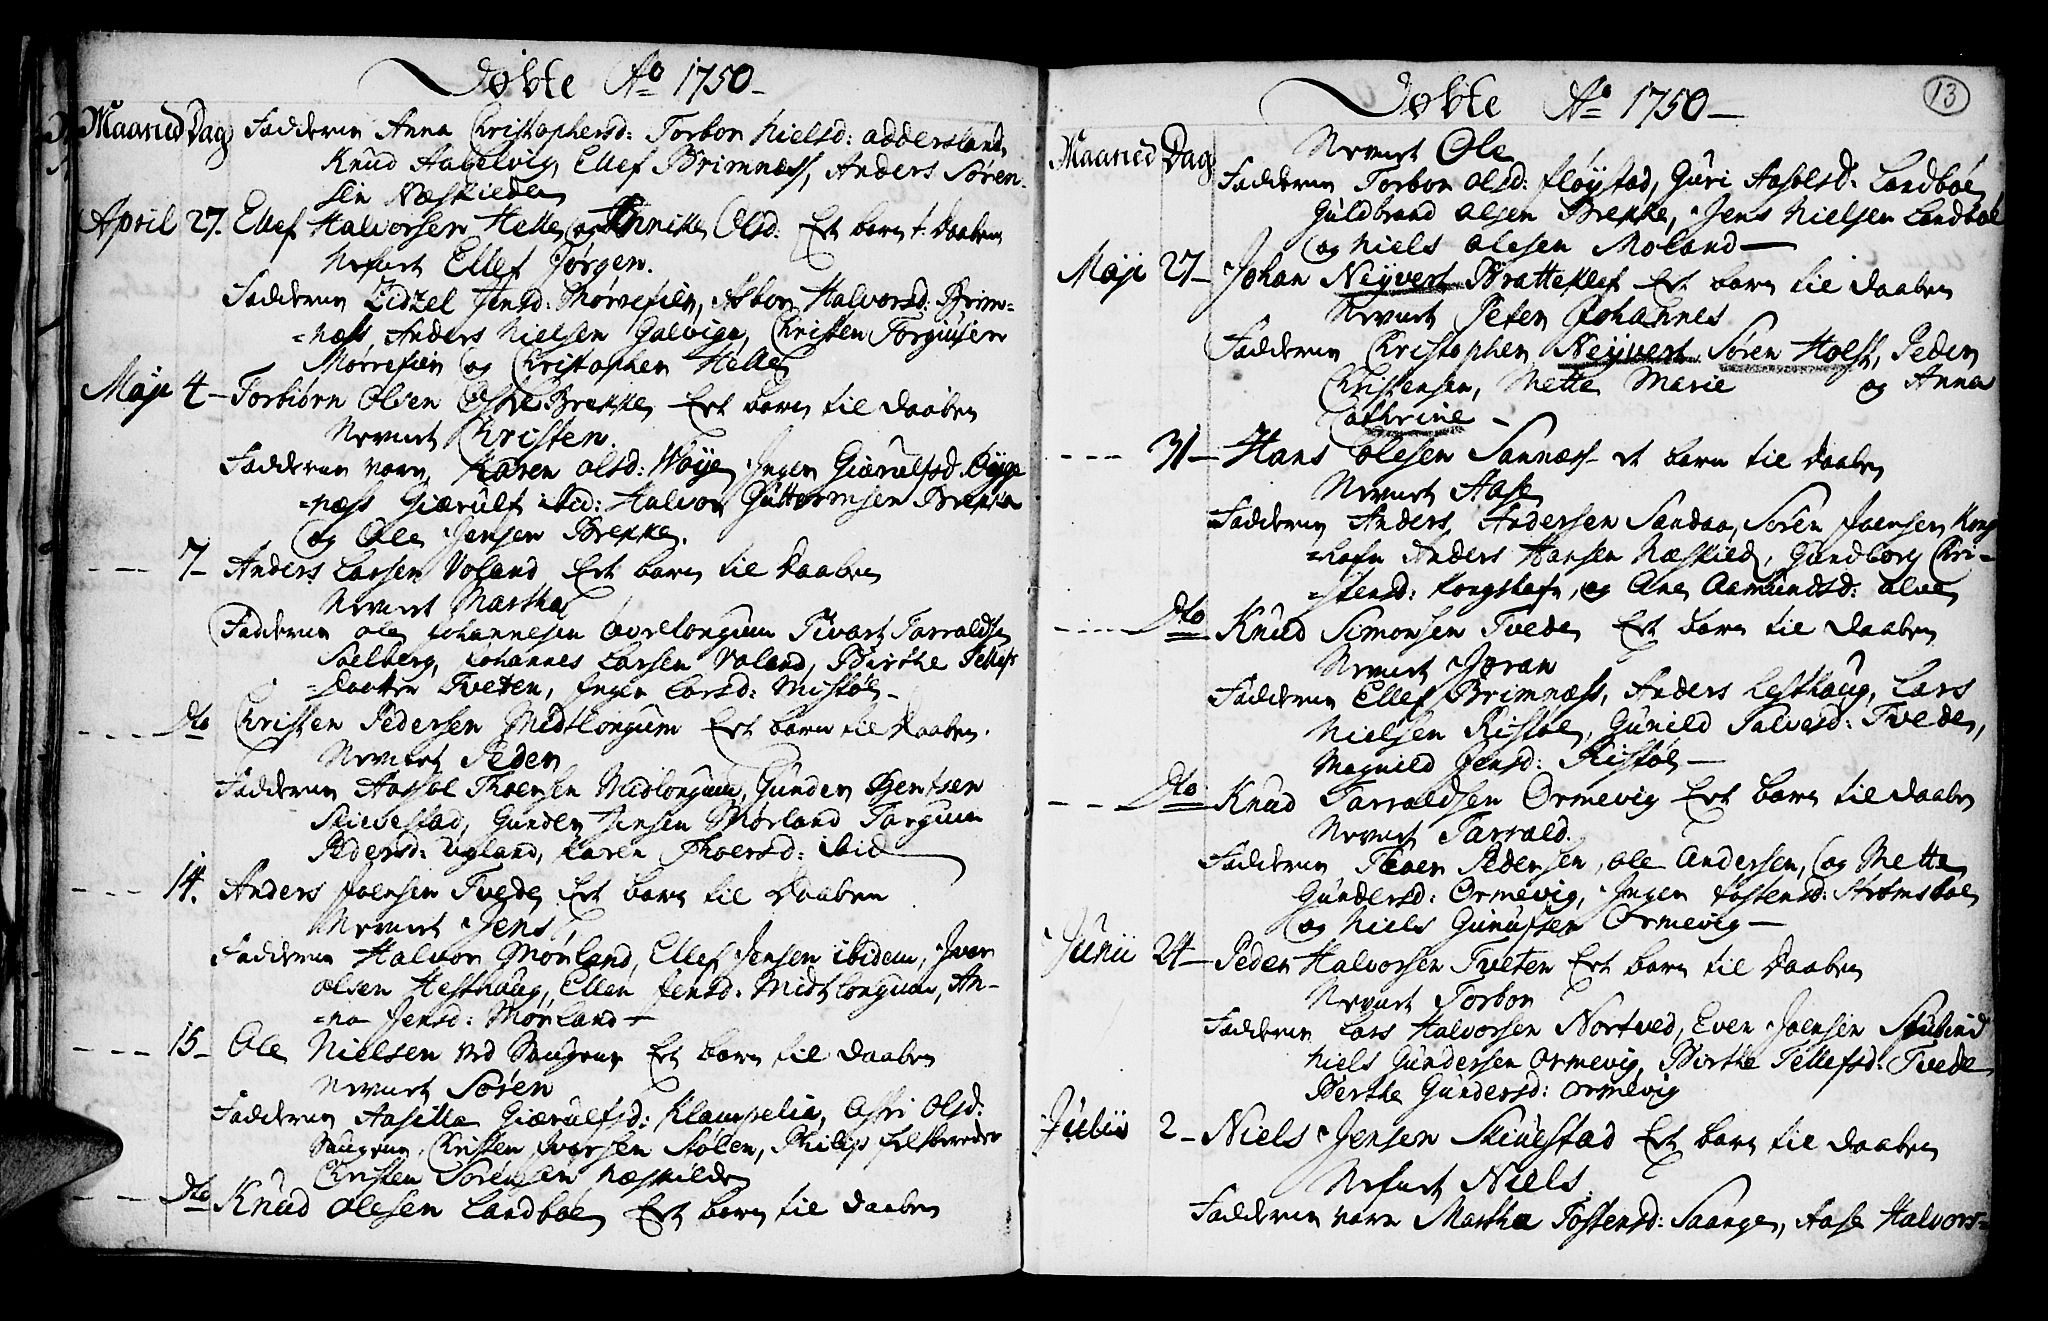 Døbte Ao 1750
Maaned Dag Fadderen Anna Christophersd: Torbor Nielsd: addersland,
Knud Hagelvig, Ellef Brimnæss, Anders Sören-
sen Næskieden
April 27. Ellef Halvorsen Helle og Olsd. Et barn t. Daaben
Nefnt Ellef Jørgen.
Fadderen Zidzel Jensd: Mørrefien, Asbor Halvorsd: Brim-
=næss, Anders Nielsen Galvign, Christen Torgiusen
Mørrefien og Christophen Helle
Maji 4 - Torbiörn Olsen Brekke Et barn til daaben
Nevnt Christen.
Fadderen varn, Karen olsd: Woye, Ingen Giærulfsd: Bygge
=næss Giærulf ibid: Halvor Guttormsen Brekke
og Ole Jensen Brekke.
7 - Anders Larsen Voland Et barn til Daaben
Nevnt Martha
Fadderen ole Johannesen Tarraldsen
Solberg, Johannes Larsen Voland, Birthe Tellefs
=daatter Tveten, Ingen Larsd: Mistöl -
Dto Christen Pedersen Midtlongum Et barn til Daaben.
Nevnt Peder
Fadderen Aassol Thoersen Midlongum, Gunder Bentsen
Skivestad, Gunder Jensen Mørland Targun
Pedersd: Ugland, Karen Thoersd: ibid
14. Anders Joensen Tvede Et barn til Daaben
Nevnt Jens
Fadderen Halvor Mørland, Ellef Jensen ibidem, Jver
olsen Hesthaug, Ellen Jensd: Midtlongum, An-
=na Jensd: Mørland -
15 - Ole Nielsen ved Saugene Et barn til Daaben
Nevnt Sören
Fadderen Aasille Giærulfsd: Asbri Olsd:
Saugene, Christen Jversen Stölen, Philip
Christen Sörensen Næskilde
Dto Knud olesen Landböe Et barn til daaben
13
Døbte Ao 1750 -
Nevnt Ole
Maaned Dag Fadderen Torbor Olsd: fløystad, Guri Aasolsd: Landböe
Guldbrand Olsen Brekke, Jens Nielsen Landböe
og Niels Olesen Moland -
Maji 27 - Johan Neyvert Bratteklef Et barn til daaben
Nevnt Peter Johannes
Fadderen Christophen Neyvert Sören Holst, Peder
Christensen, Mette Marie og Anna
Cathrine -
31 - Hans Olesen Sannæs - et barn til daaben
Nevnt Aase
Fadderen Anders Andersen Sandaa, Sören Joensen Kong
=hafn Anders Hansen Næskild, Gundborg Chri-
=stensd: Kongshafn, og Ane Aamundsd: alve
Dto Knud Simonsen Tvede Et barn til Daaben
Nevnt Joran
Fadderen Ellef Brimnæss, Anders Lesthaug, Lars
Nielsen Ristöl, Gunild Salvesd: Tvede,
Magnild Jensd: Ristöl -
Dto Knud Tarraldsen Ormevig Et barn til Daaben
Nevnt Tarrald.
Fadderen Peder Pedersen, ole Andersen, og Mette
Gundersd: Ormevig, Ingen Tostensd: Strömsböe
og Niels Gunufsen Ormevig -
Junii 24 - Peder Halvorsen Tveten Et barn til Daaben
Nevnt Torbor
Fadderen Lars Halvorsen Nortved, Even Joensen
Niels Gundersen Ormevig, Birthe Tellefsd: Tvede
Berthe Gundersd: Ormevig
Julii 2 - Niels Jensen Skivestad Et barn til Daaben
Nefnt Niels.
Fadderen varn Martha Tostensd: Saange, Aase Halvors=